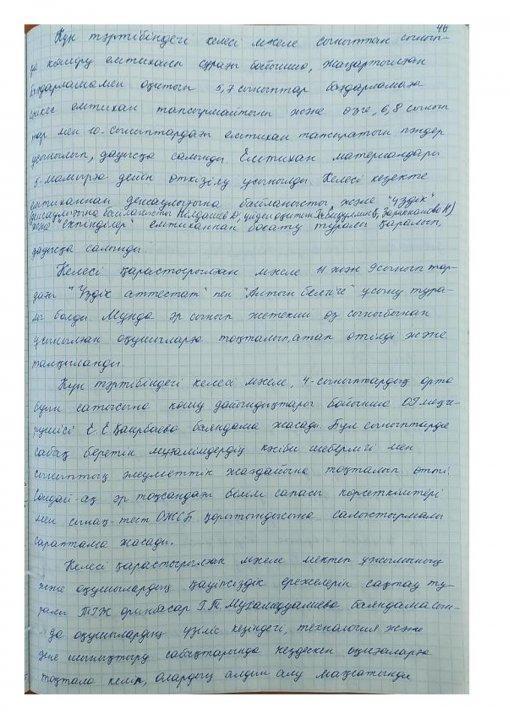 46
Күн тәртібіндегі келесі мәселе сыныптан сынып-
қа көшіру емтиханы туралы бойынша, жаңартылған
бағдарламамен оқитын 5,7 сыныптар бағдарламаға
сәйкес емтихан тапсырмайтыны және өзге, 6,8 сынып
тар мен 10-сыныптардағы емтихан тапсыратын пәндер
ұсынылып, дауысқа салынды. Емтихан материалдары
5-мамырға дейін өткізілу ұсынылды. Келесі кезекте
емтиханнан денсаулығына байланысты және "үздік"
денсаулығына байланысты үйден оқитын
және "екпінділер" емтиханнан босату туралы қаралып,
дауысқа салынды.
Келесі қарастырылған мәселе 11 және 9 сыныптар-
дағы "Үздік аттестат" пен "Алтын белгіге" ұсыну тура-
лы болды. Мұнда әр сынып жетекші өз сыныбынан
ұсынылған оқушыларға тоқталып, атап өтілді және
талқыланды.
Күн тәртібіндегі келесі мәселе, 4-сыныптардың орта
буын сатысына көшу дайындықтары бойынша ОІ меңге-
рушісі Е Е Қаирбаева баяндама жасады. Бұл сыныптарға
сабақ беретін мұғалімдердің кәсіби шеберлігі мен
сыныптың әлеуметтік жағдайына тоқталып өтті.
Сондай-ақ әр тоқсандағы білім сапасы көрсеткіштері
мен сынақ-тест ОЖСБ қорытындысына салыстырмалы
сараптама жасады.
Келесі қарастырылған мәселе мектеп ұжымының
және оқушылардың қауіпсіздік ережелерін сақтау ту-
ралы ТІЖ орынбасар Г.Т Мухамадуалиева баяндамасын-
да оқушылардың үзіліс кезіндегі, технология және
дене шынықтыру сабақтарында кездескен оқиғаларға
тоқтала келіп, олардың алдын алу мақсатында